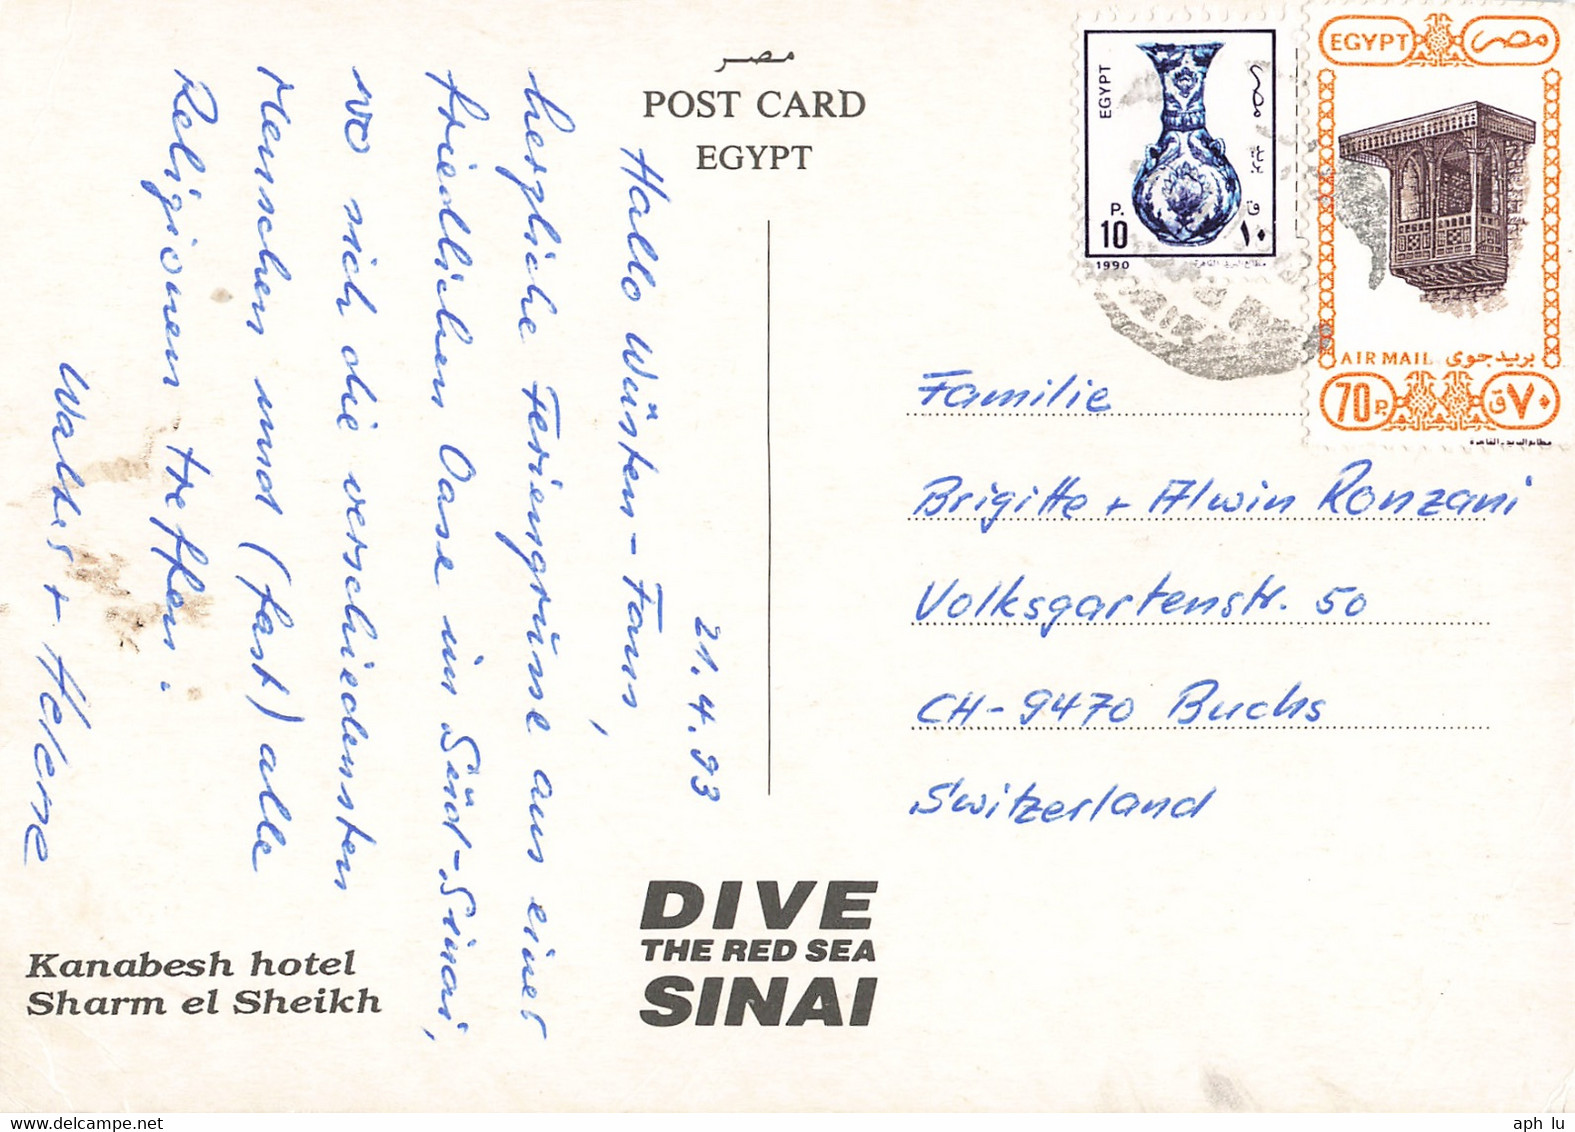 مصر
POST CARD
EGYPT
21.4.93
Hallo Wüsten-Fans,
herzliche Feriengrüsse aus einer
friedlichen Oase im Süd-Sinai,
wo sich die verschiedensten
Menschen und (fast) alle
Religionen treffen.
Walter + Helene
Kanabesh hotel
Sharm el Sheikh
DIVE
THE RED SEA
SINAI
EGYPT
مصر
بريد
P.
10
ق
١٠
1990
مطابع البريد القاهرة
EGYPT
مصر
AIR MAIL بريد جوى
70 P.
ق ٧٠
مطابع البريد - القاهرة
Familie
Brigitte + Alwin Ronzani
Volksgartenstr. 50
CH-9470 Buchs
Switzerland
aph lu